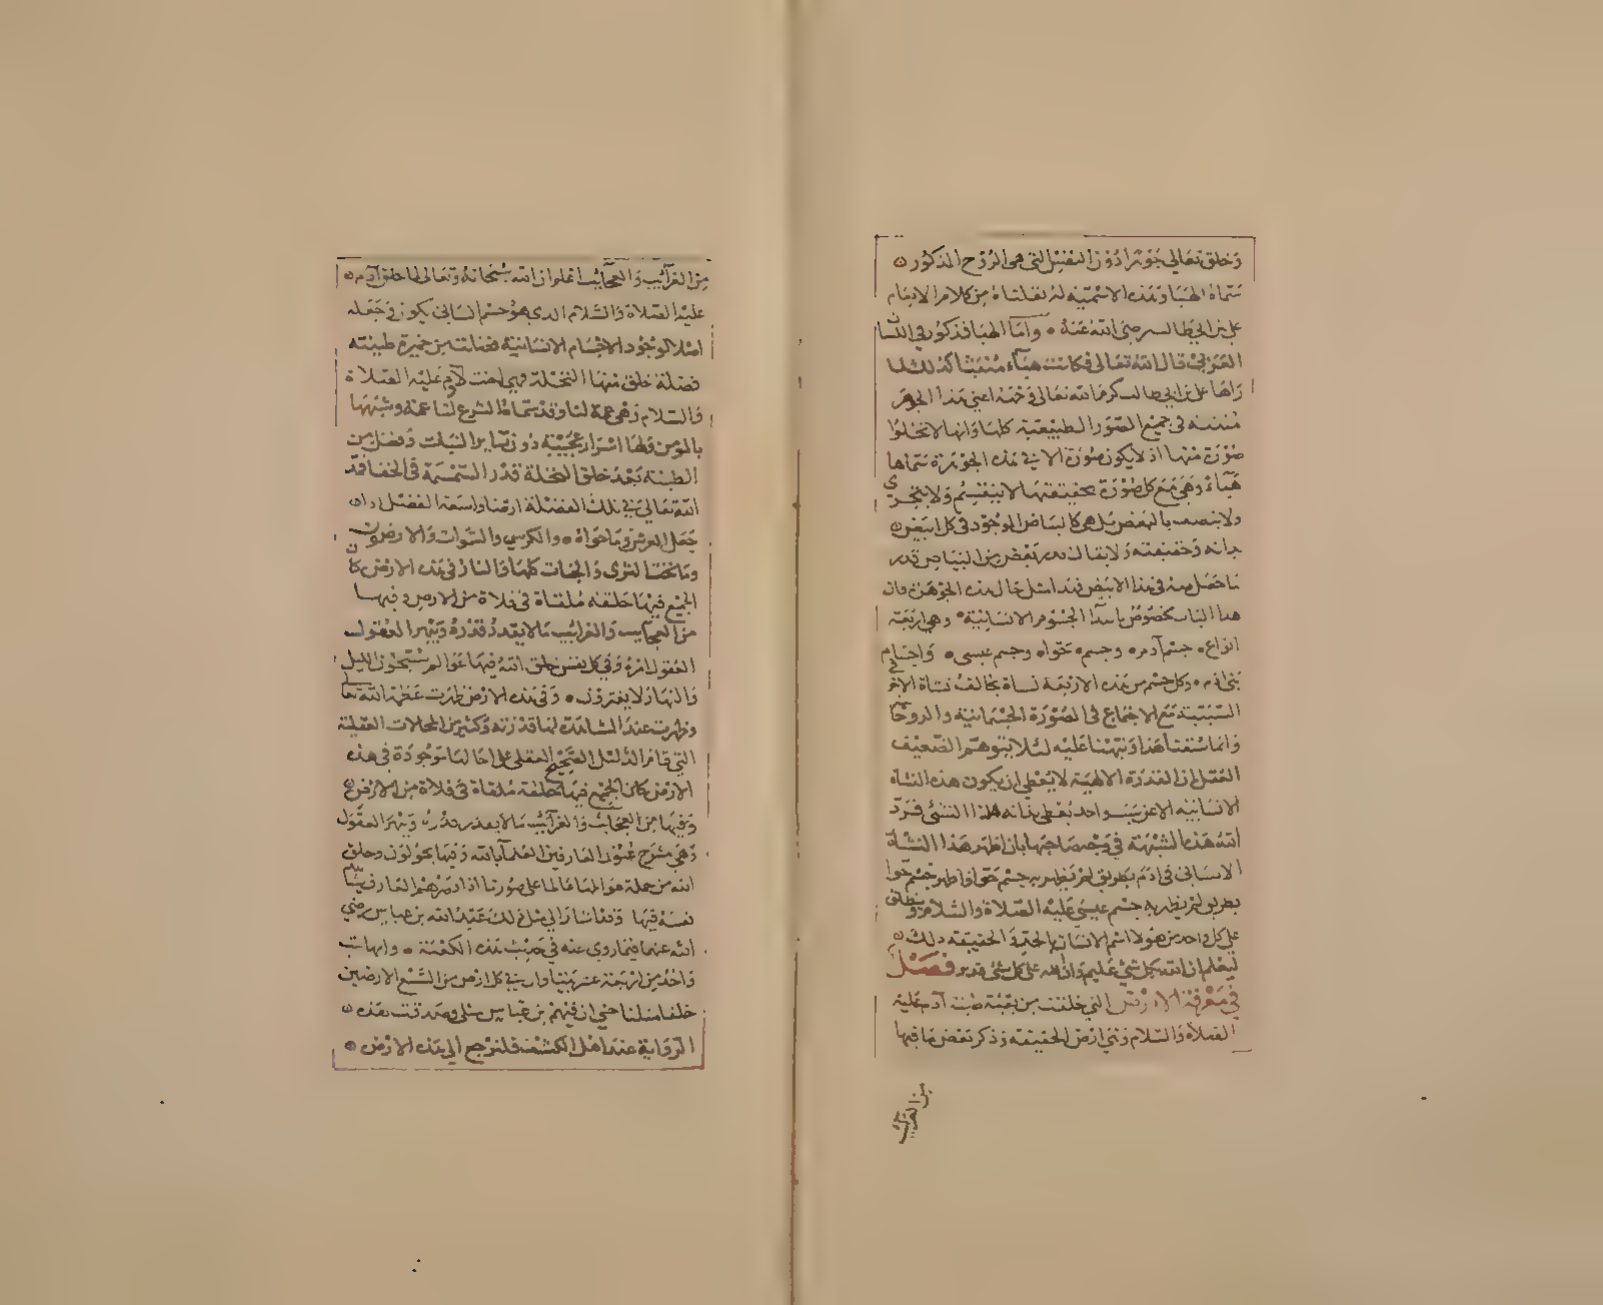 وخلق تعالى جوهرا دون النفس التي هي الروح المذكور
سماه الهبا وهذه الاسمية له نقلناه من كلام الامام
علي بن ابي طالب رضي الله عنه وأما الهبا فمذكور في اللسان
العربي قال الله تعالى فكانت هباء منبثا كذلك لما
راها علي بن ابي طالب كرم الله تعالى وجهه اعني هذا الجوهر
منبثه في جميع الصور الطبيعية كلها وانها لا تخلوا
صورة منها اذ لا يكون صورة الا في هذه الجوهرة سماها
هباء وهي مع كل صورة بحقيقتها لا ينقسم ولا يتجزى
ولا يتصف بالنقص بل هي كالبياض الموجود في كل ابيض
بذاته وحقيقته ولا يقال قد نقص من البياض قدر
ما حصل منه في هذا الابيض فهذا مثل حال هذه الجوهرة وان
هذا الباب مخصوص بابتدا الجسوم الانسانية وهي اربعة
انواع جسم آدم وجسم حوا وجسم عيسى واجسام
بني ادم وكل جسم من هذه الاربعة نشاة يخالف نشاة الاخر
السببية مع الاجتماع في الصورة الجسمانية والروحا
وانما سقنا هذا ونبهنا عليه لئلا يتوهم الضعيف
العقل ان القدرة الالهية لا يعطي ان يكون هذه النشاة
الانسانية الا عن سبب واحد يعطي بذاته هذا النشئ فرد
الله هذه الشبهة في وجه صاحبها بان اظهر هذا النشاة
الانساني في ادم بطريق لم يظهر به جسم حوا واظهر جسم حوا
بطريق لم يظهر به جسم عيسى عليه الصلاة والسلام وينطلق
على كل واحد من هولا اسم الانسان بالحد والحقيقة ذلك
ليعلم ان الله بكل شئ عليم وان الله على كل شئ قدير فصل
في معرفة الارض التي خلقت من بقية طينة آدم عليه
الصلاة والسلام وهي ارض الحقيقة وذكر بعض ما فيها
من الغرايب
من الغرآئب والعجآئب اعلموا ان الله سبحانه وتعالى لما خلق آدم
عليه الصلاة والسلام الذي هو جسم انساني يكون في جعله
اصلا لوجود الاجسام الانسانية فضلت من خميرة طينته
فضلة خلق منها النخلة فهي اخت لآدم عليه الصلاة
والسلام وهي عمة لنا وقد سماها الشرع لنا عمة وشبهها
بالمومن ولها اسرار عجيبة دون سائر النبات وفضل من
الطينة بعد خلق النخلة قدر السمسمة في الخفا فمد
الله تعالى في تلك الفضلة ارضا واسعة الفضا اذا
جعل العرش وما حواه والكرسي والسموات والارضون
وما تحت الثرى والجنات كلها والنار في هذه الارض كان
الجميع فيها كحلقة ملقاة في فلاة من الارض وفيها
من العجايب والغرائب ما لا يقدر قدره ويبهر العقول
العقول امره وفي كل نفس خلق الله فيها عوالم يسبحون الليل
والنهار لا يفترون وفي هذه الارض ظهرت عظمة الله تعالى
وظهرت عند المشاهد لها قدرته وكثير من المحالات العقلية
التي قام الدليل الصحيح العقلي على احالتها موجودة في هذه
الارض كان الجميع فيها كحلقة ملقاة في فلاة من الارض
وفيها من العجائب والغرآئب ما لا يقدر قدره ويبهر العقول
وهي مسرح عيون العارفين العلمآ بالله وفيها يجولون وخلق
الله من جملة عوالمها عالما على صورنا اذا ابصرهم العارف يشاهد
نفسه فيها وقد اشار الى مثل ذلك عبد الله بن عباس رضي
الله عنهما فيما روي عنه في حديث هذه الكعبة وانها بيت
واحد من اربعة عشر بيتا وان في كل ارض من السبع الارضين
خلقا مثلنا حتى ان فيهم بن عباس مثلي وصدقت هذه
الرواية عند اهل الكشف فلنرجع الى هذه الارض